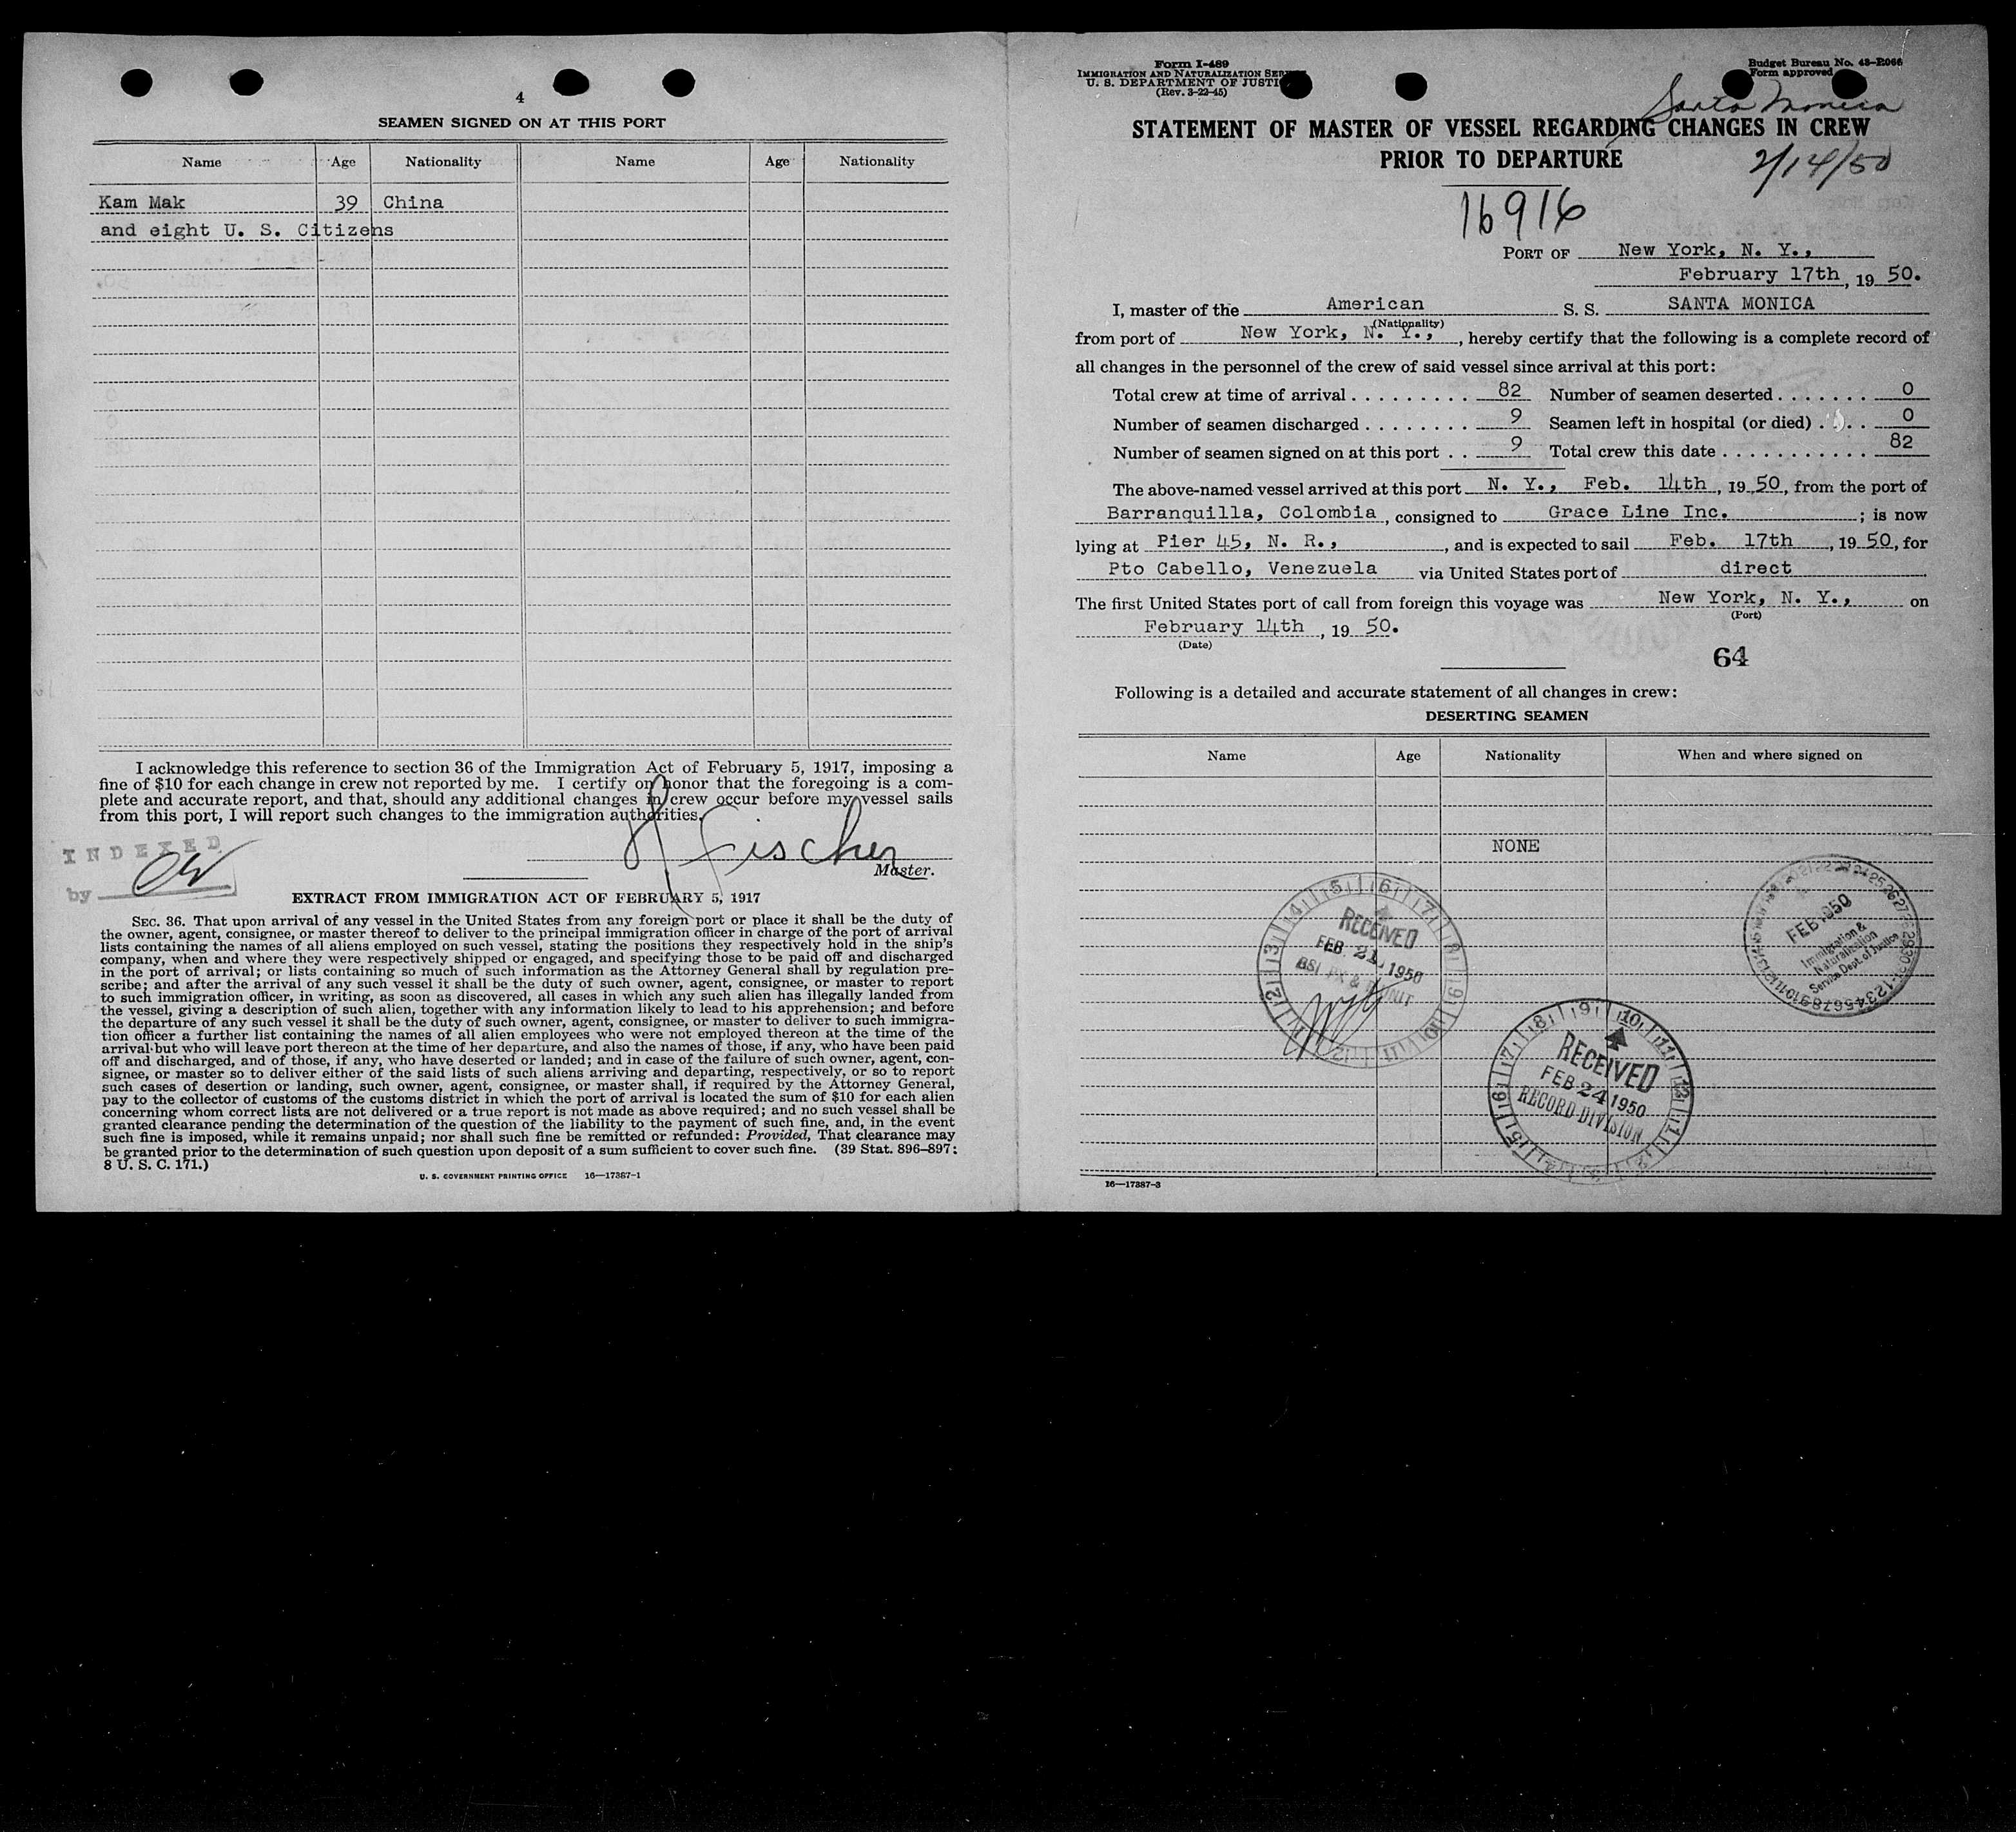 4
SEAMEN SIGNED ON AT THIS PORT
Name Age Nationality Name Age Nationality
Kam Mak 39 China
and eight U. S. Citizens
I acknowledge this reference to section 36 of the Immigration Act of February 5, 1917, imposing a
fine of $10 for each change in crew not reported by me. I certify on honor that the foregoing is a com-
plete and accurate report, and that, should any additional changes in crew occur before my vessel sails
from this port, I will report such changes to the immigration authorities.
Fischer
Master.
INDEXED
by
EXTRACT FROM IMMIGRATION ACT OF FEBRUARY 5, 1917
SEC. 36. That upon arrival of any vessel in the United States from any foreign port or place it shall be the duty of
the owner, agent, consignee, or master thereof to deliver to the principal immigration officer in charge of the port of arrival
lists containing the names of all aliens employed on such vessel, stating the positions they respectively hold in the ship's
company, when and where they were respectively shipped or engaged, and specifying those to be paid off and discharged
in the port of arrival; or lists containing so much of such information as the Attorney General shall by regulation pre-
scribe; and after the arrival of any such vessel it shall be the duty of such owner, agent, consignee, or master to report
to such immigration officer, in writing, as soon as discovered, all cases in which any such alien has illegally landed from
the vessel, giving a description of such alien, together with any information likely to lead to his apprehension; and before
the departure of any such vessel it shall be the duty of such owner, agent, consignee, or master to deliver to such immigra-
tion officer a further list containing the names of all alien employees who were not employed thereon at the time of the
arrival but who will leave port thereon at the time of her departure, and also the names of those, if any, who have been paid
off and discharged, and of those, if any, who have deserted or landed; and in case of the failure of such owner, agent, con-
signee, or master so to deliver either of the said lists of such aliens arriving and departing, respectively, or so to report
such cases of desertion or landing, such owner, agent, consignee, or master shall, if required by the Attorney General,
pay to the collector of customs of the customs district in which the port of arrival is located the sum of $10 for each alien
concerning whom correct lists are not delivered or a true report is not made as above required; and no such vessel shall be
granted clearance pending the determination of the question of the liability to the payment of such fine, and, in the event
such fine is imposed, while it remains unpaid; nor shall such fine be remitted or refunded: Provided, That clearance may
be granted prior to the determination of such question upon deposit of a sum sufficient to cover such fine. (39 Stat. 896-897;
8 U. S. C. 171.)
U. S. GOVERNMENT PRINTING OFFICE 16—17387-1
Form I-489
IMMIGRATION AND NATURALIZATION
U. S. DEPARTMENT OF
(Rev. 3-22-45)
Budget Bureau No. 43-R066
Form approved
Santa Monica
STATEMENT OF MASTER OF VESSEL REGARDING CHANGES IN CREW
PRIOR TO DEPARTURE
2/14/50
16916
PORT OF New York, N. Y.,
February 17th, 19 50.
I, master of the American S. S. SANTA MONICA
(Nationality)
from port of New York, N. Y., , hereby certify that the following is a complete record of
all changes in the personnel of the crew of said vessel since arrival at this port:
Total crew at time of arrival . . . . . . . . . 82 Number of seamen deserted . . . . . . . 0
Number of seamen discharged . . . . . . . . 9 Seamen left in hospital (or died) . . . . 0
Number of seamen signed on at this port . . 9 Total crew this date . . . . . . . . . . . 82
The above-named vessel arrived at this port N. Y., Feb. 14th, 19 50, from the port of
Barranquilla, Colombia, consigned to Grace Line Inc. ; is now
lying at Pier 45, N. R., , and is expected to sail Feb. 17th, 19 50, for
Pto Cabello, Venezuela via United States port of direct
The first United States port of call from foreign this voyage was New York, N. Y., on
(Port)
February 14th, 19 50.
(Date)
64
Following is a detailed and accurate statement of all changes in crew:
DESERTING SEAMEN
Name Age Nationality When and where signed on
NONE
RECEIVED
FEB. 21 1950
FEB 1950
Immigration &
Naturalization
Service Dept. of Justice
RECEIVED
FEB 24 1950
RECORD DIVISION
16—17387-3